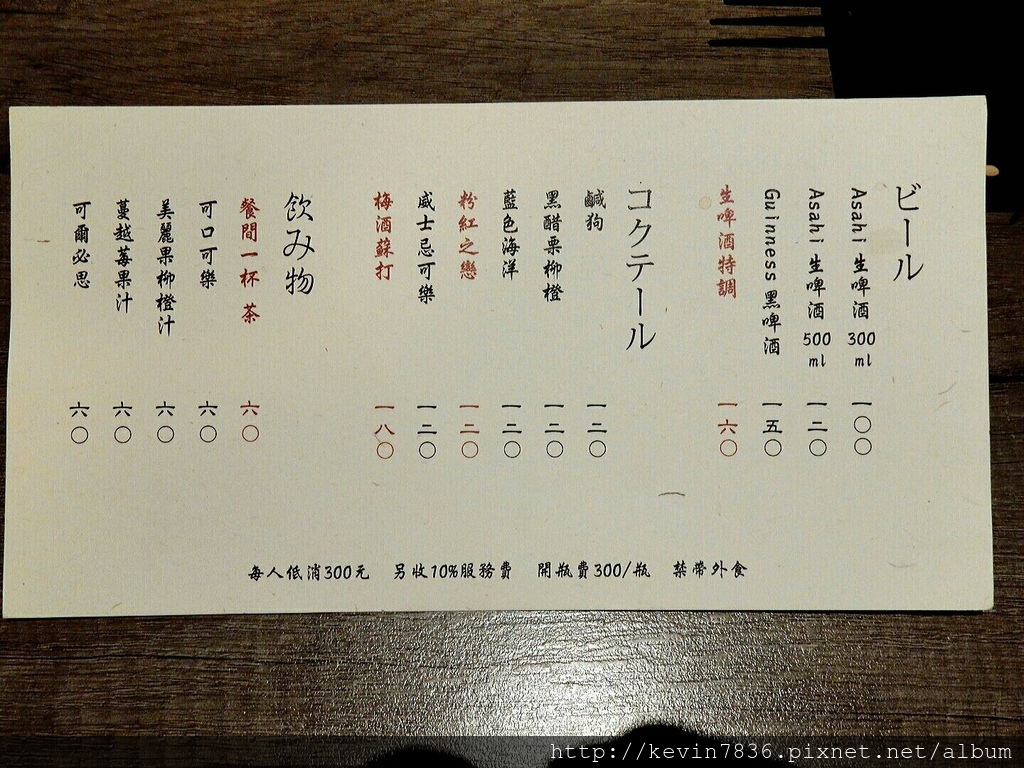 ビール
Asahi 生啤酒 300 ml 一〇〇
Asahi 生啤酒 500 ml 一二〇
Guinness 黑啤酒 一五〇
生啤酒特調 一六〇
コクテール
鹹狗 一二〇
黑醋栗柳橙 一二〇
藍色海洋 一二〇
粉紅之戀 一二〇
威士忌可樂 一二〇
梅酒蘇打 一八〇
飲み物
餐間一杯 茶 六〇
可口可樂 六〇
美麗果柳橙汁 六〇
蔓越莓果汁 六〇
可爾必思 六〇
每人低消300元 另收10%服務費 開瓶費300/瓶 禁帶外食
http://kevin7836.pixnet.net/album